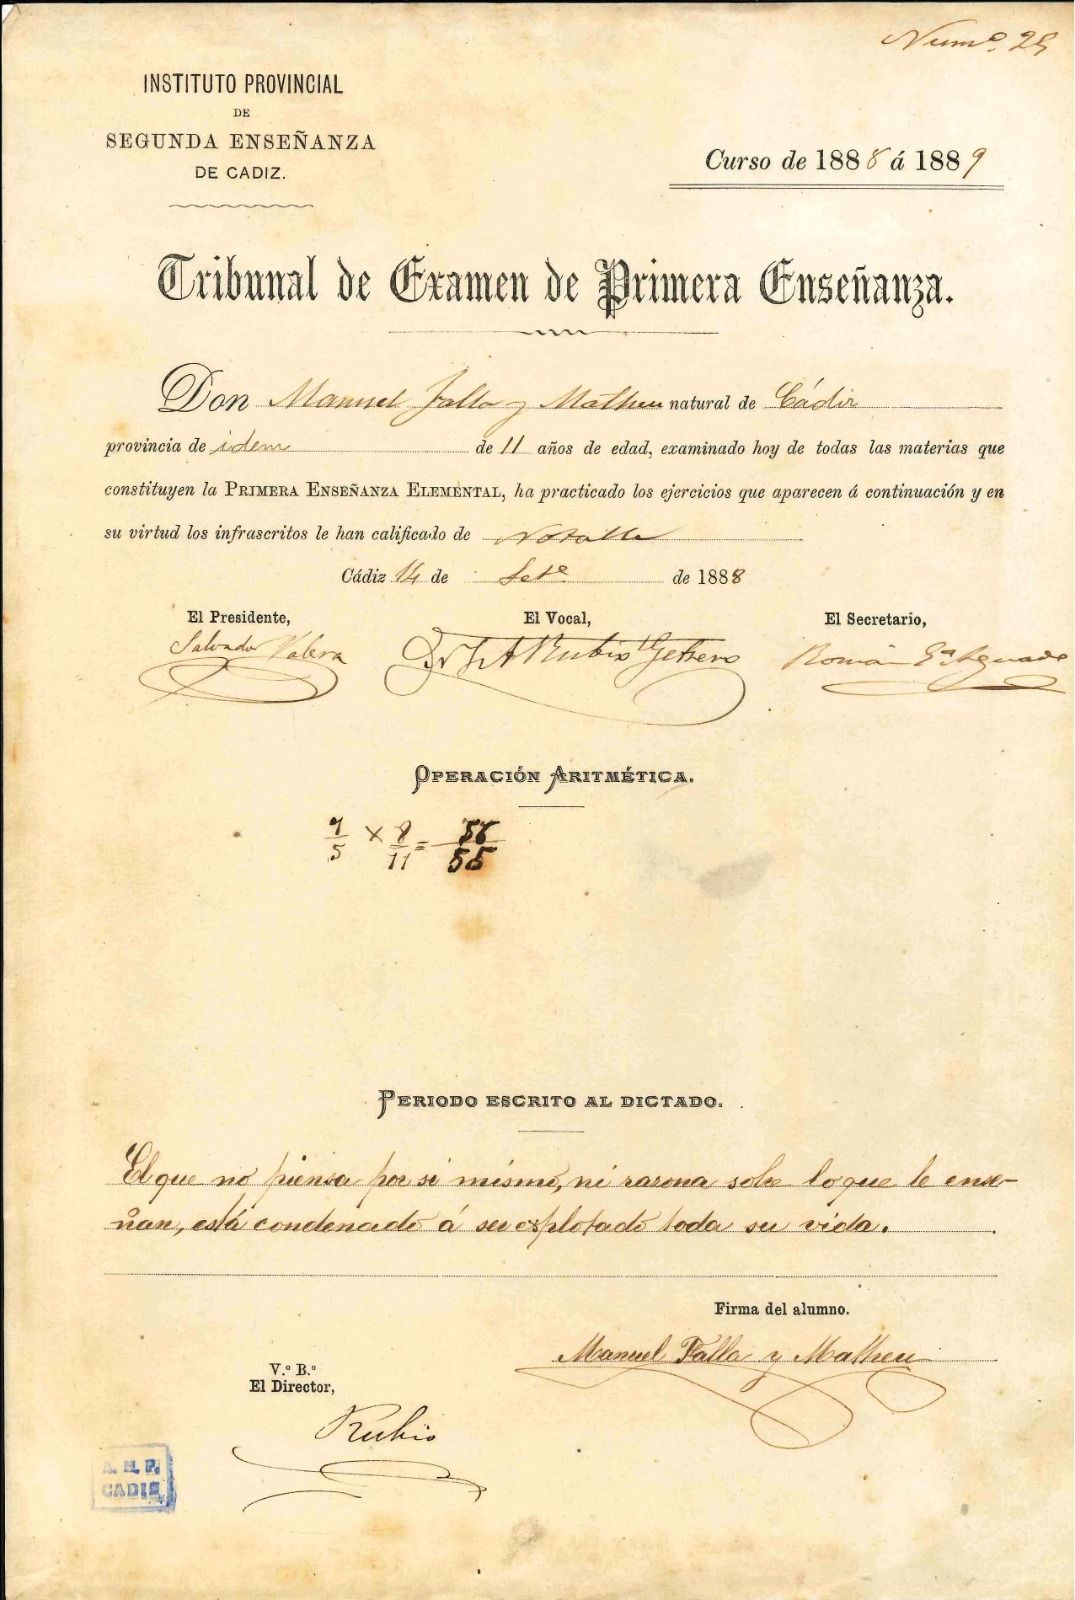 Numº. 25
INSTITUTO PROVINCIAL
DE
SEGUNDA ENSEÑANZA
DE CADIZ.
Curso de 1888 á 1889
Tribunal de Examen de Primera Enseñanza.
Don Manuel Falla y Matheu natural de Cádiz
provincia de idem de 11 años de edad, examinado hoy de todas las materias que
constituyen la PRIMERA ENSEÑANZA ELEMENTAL, ha practicado los ejercicios que aparecen á continuación y en
su virtud los infrascritos le han calificado de Notable
Cádiz 14 de Setᵉ de 1888
El Presidente, El Vocal, El Secretario,
Salvador Valera Rubio Román Gª Aguado
OPERACIÓN ARITMÉTICA.
7/5 × 8/11 = 56/55
PERIODO ESCRITO AL DICTADO.
El que no piensa por si mismo, ni razona sobre lo que le ense-
ñan, está condenado á ser esplotado toda su vida.
Firma del alumno.
Manuel Falla y Matheu
V.º B.º
El Director,
Rubio
A. H. P.
CADIZ